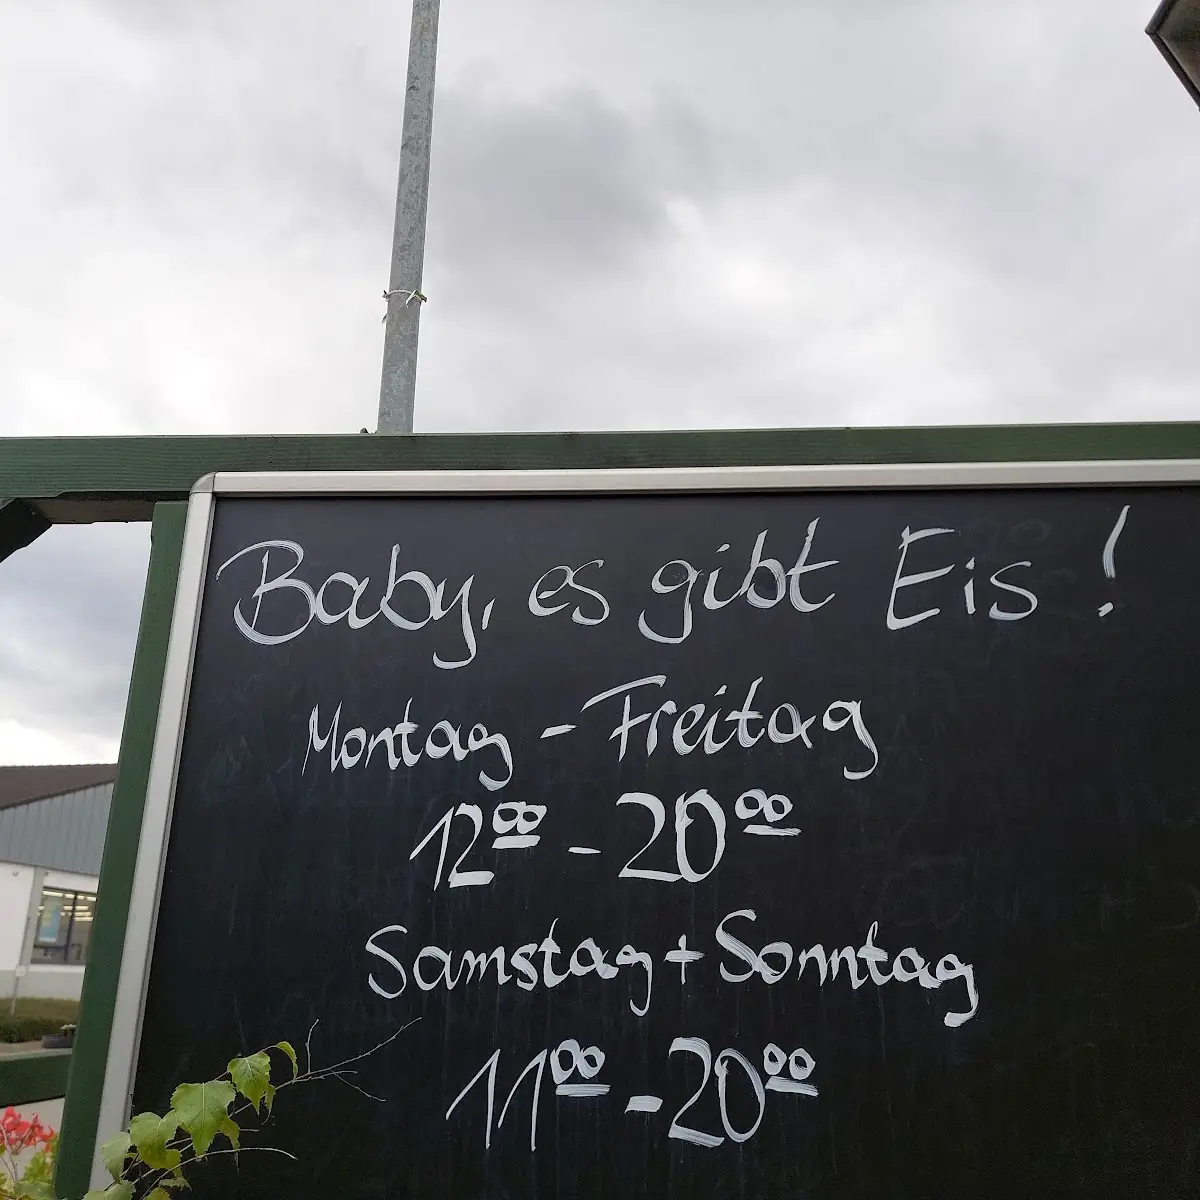 Baby, es gibt Eis!
Montag - Freitag
12⁰⁰ - 20⁰⁰
Samstag + Sonntag
11⁰⁰ - 20⁰⁰